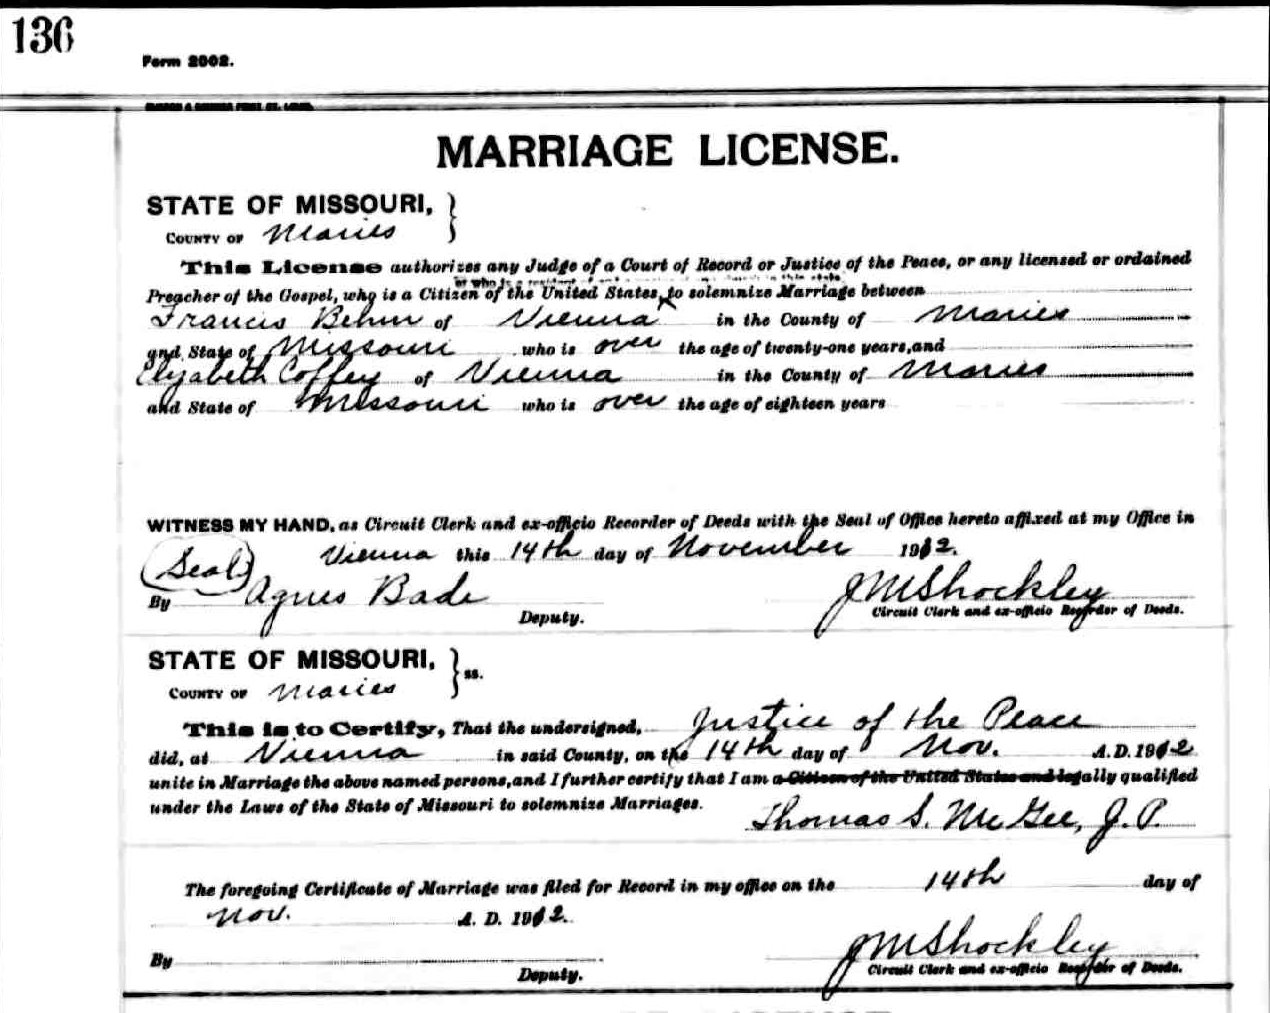 136
Form 2002.
MARRIAGE LICENSE.
STATE OF MISSOURI,
COUNTY OF Maries
This License authorizes any Judge of a Court of Record or Justice of the Peace, or any licensed or ordained
or who is a resident of and in this state
Preacher of the Gospel, who is a Citizen of the United States, to solemnize Marriage between
Francis Behm of Vienna in the County of Maries
and State of Missouri who is over the age of twenty-one years, and
Elizabeth Coffey of Vienna in the County of Maries
and State of Missouri who is over the age of eighteen years
WITNESS MY HAND, as Circuit Clerk and ex-officio Recorder of Deeds with the Seal of Office hereto affixed at my Office in
Vienna this 14th day of November 1912.
(Seal)
By Agnes Bade J M Shockley
Deputy. Circuit Clerk and ex-officio Recorder of Deeds.
STATE OF MISSOURI,
ss.
COUNTY OF Maries
This is to Certify, That the undersigned, Justice of the Peace
did, at Vienna in said County, on the 14th day of Nov. A.D. 1912
unite in Marriage the above named persons, and I further certify that I am a Citizen of the United States and legally qualified
under the Laws of the State of Missouri to solemnize Marriages.
Thomas S. McGee, J. P.
The foregoing Certificate of Marriage was filed for Record in my office on the 14th day of
Nov. A. D. 1912.
J M Shockley
By Deputy. Circuit Clerk and ex-officio Recorder of Deeds.